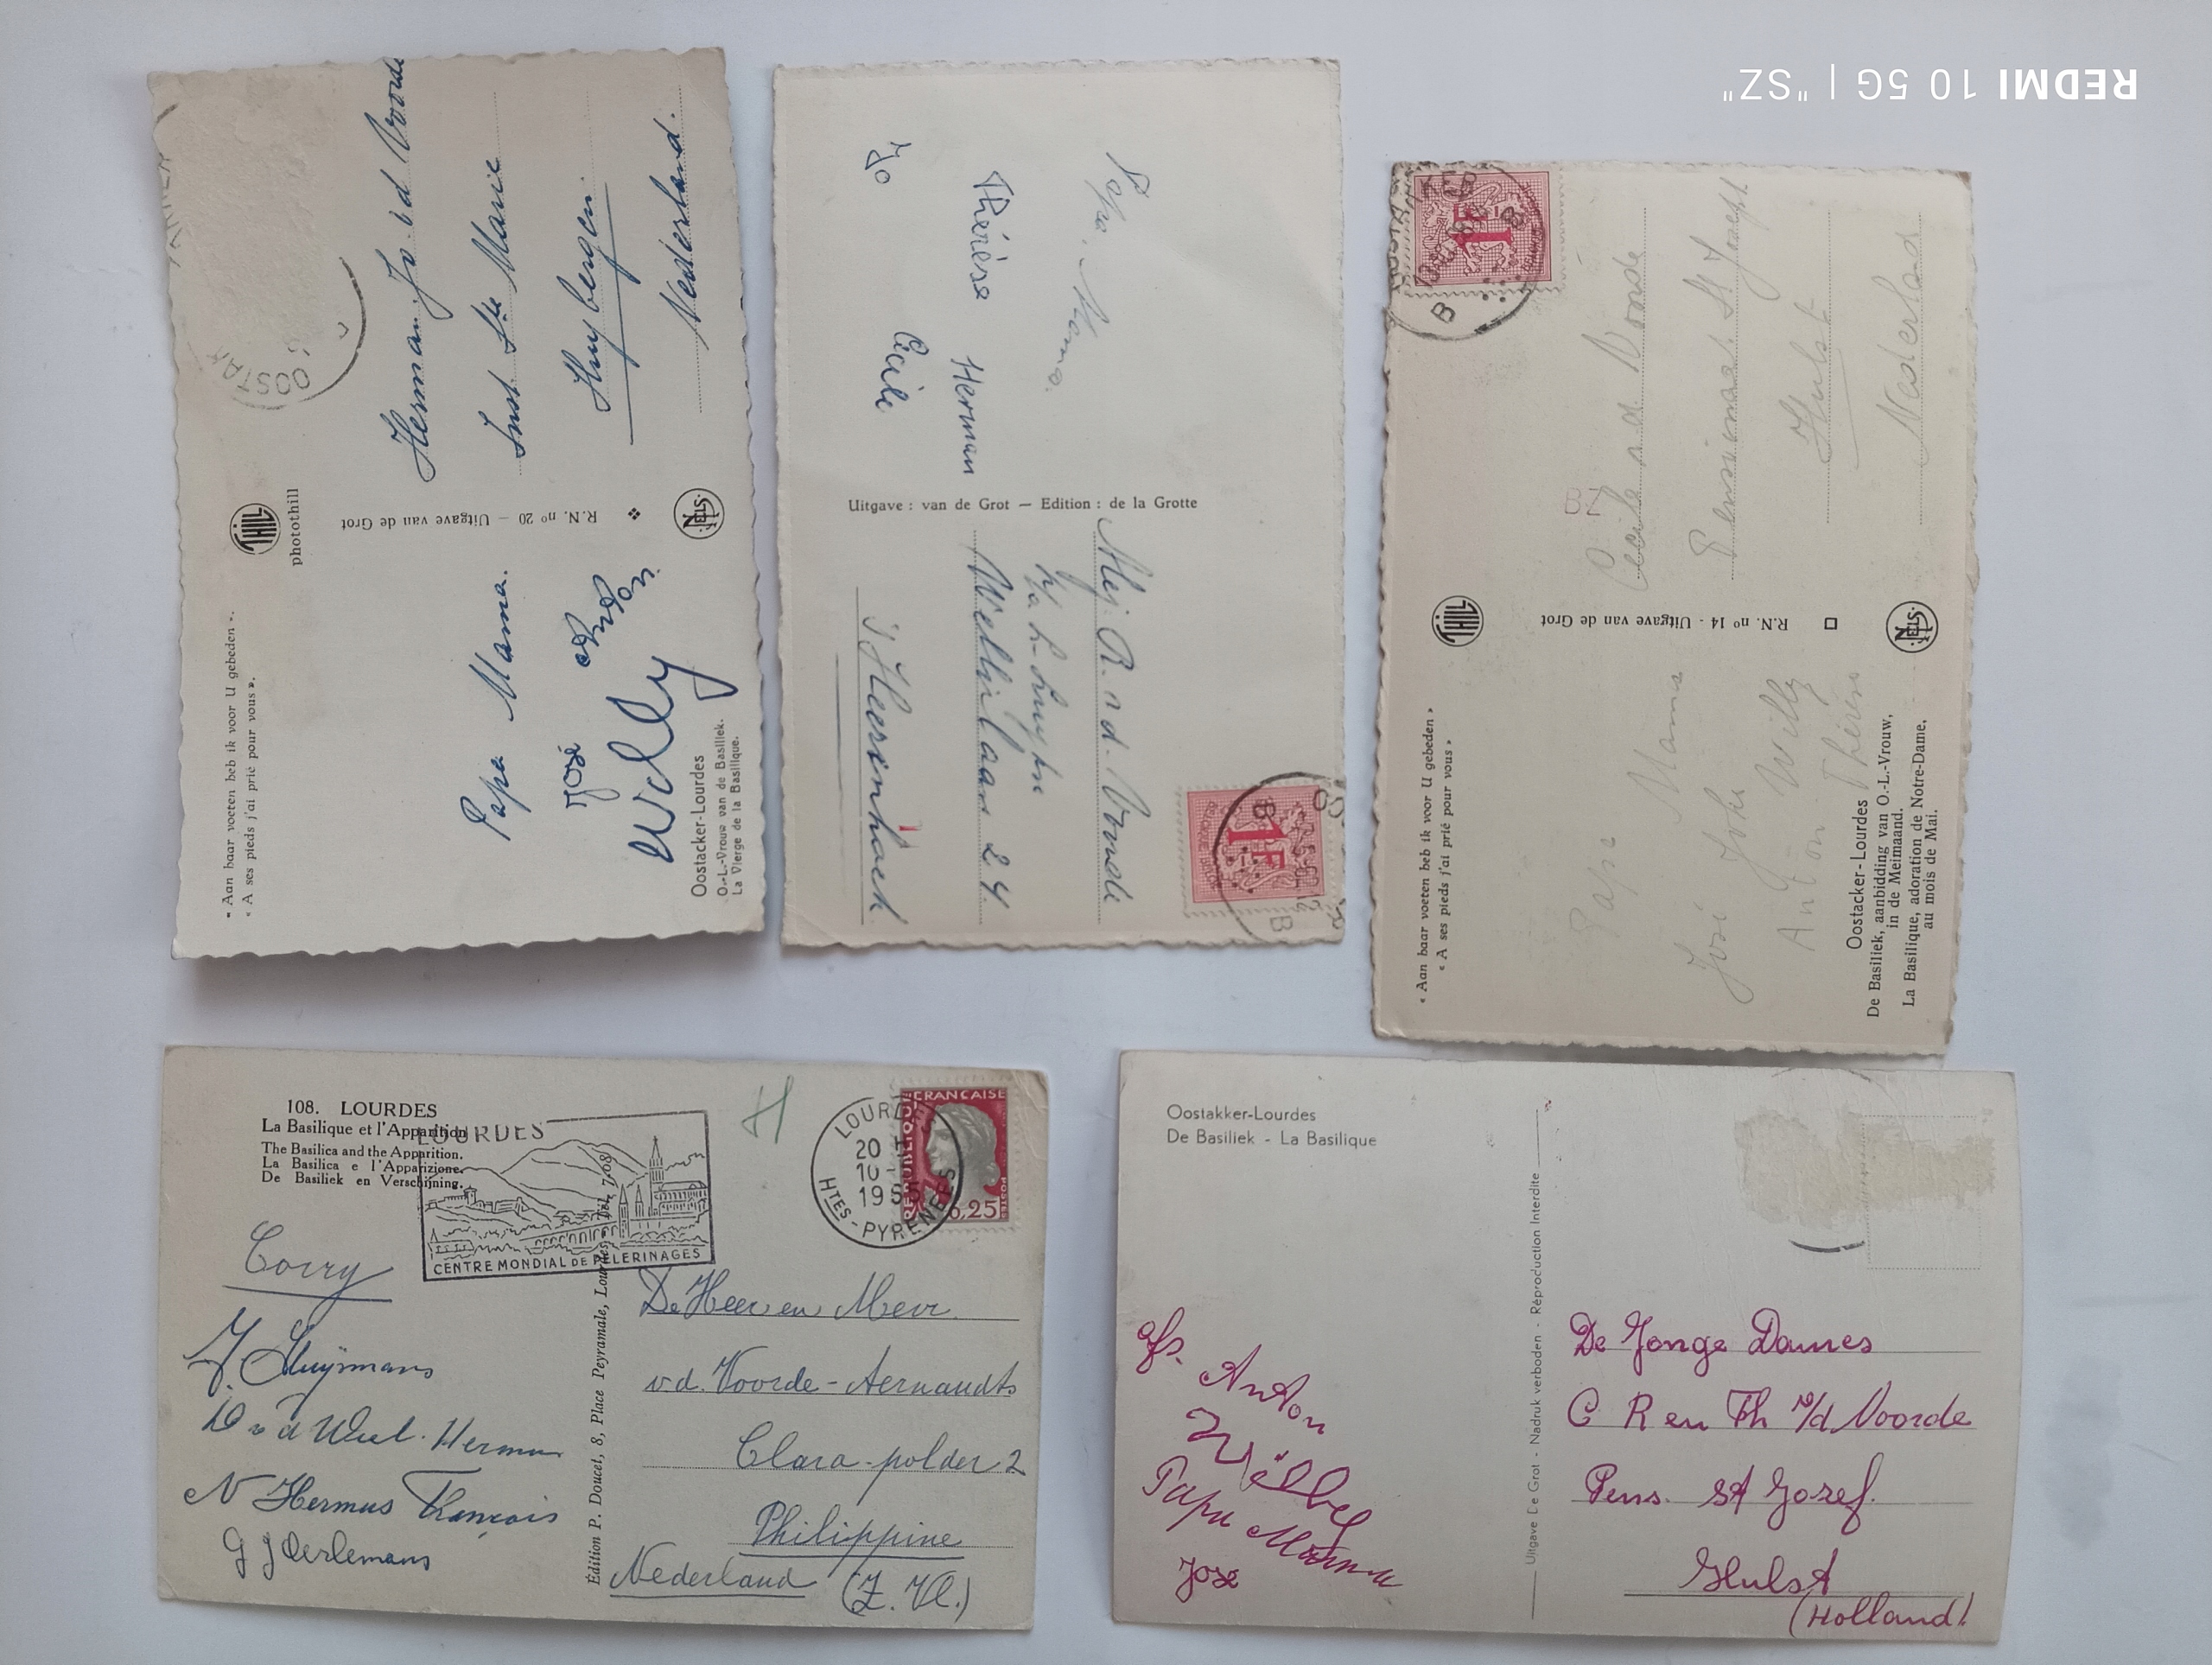 REDMI 10 5G | "SZ"
« Aan haar voeten heb ik voor U gebeden ».
« A ses pieds j'ai prié pour vous ».
THILL
photothill
R.N. nº 20 — Uitgave van de Grot
NELS
OOSTAK
Herman, Jo v d Voorde
Inst Ste Marie
Huybergen
Nederland.
Papa Mama.
José Anton
Willy
Oostacker-Lourdes
O.-L.-Vrouw van de Basiliek.
La Vierge de la Basilique.
Jo
Thérèse
Cecile
Herman
Papa, Mama.
Uitgave : van de Grot — Edition : de la Grotte
Mej. R. v d. Voorde
Wellinlaan 24
's Heerenhoek
1F
B
« Aan haar voeten heb ik voor U gebeden »
« A ses pieds j'ai prié pour vous »
THILL
R.N. nº 14 - Uitgave van de Grot
NELS
1F
B
BZ
Cecile v. d. Voorde
Pensionaat St Joseph
Hulst
Nederland
Papa Mama
José Joke
Anton Willy
Thérèse
Oostacker-Lourdes
De Basiliek, aanbidding van O.-L.-Vrouw,
in de Meimaand.
La Basilique, adoration de Notre-Dame,
au mois de Mai.
108. LOURDES
La Basilique et l'Apparition
The Basilica and the Apparition.
La Basilica e l'Apparizione.
De Basiliek en Verschijning.
LOURDES
CENTRE MONDIAL DE PÈLERINAGES
H
LOURDES
20 H
10 -
Htes-PYRENEES
REPUBLIQUE FRANCAISE
0,25
POSTES
Édition P. Doucet, 8, Place Peyramale, Lourdes - Tél. 7-08
Corry
J. Huijsmans
N Hermus François
G J Oerlemans
De Heer en Mevr.
v.d. Voorde - Aernaudts
Clara-polder 2
Philippine
Nederland (Z. Vl.)
Oostakker-Lourdes
De Basiliek - La Basilique
Uitgave De Grot - Nadruk verboden - Réproduction Interdite
Gfs. Anton
Papa Mama
José
De Jonge Dames
C R en Th v/d Voorde
Pens. St Jozef.
Hulst
(Holland!